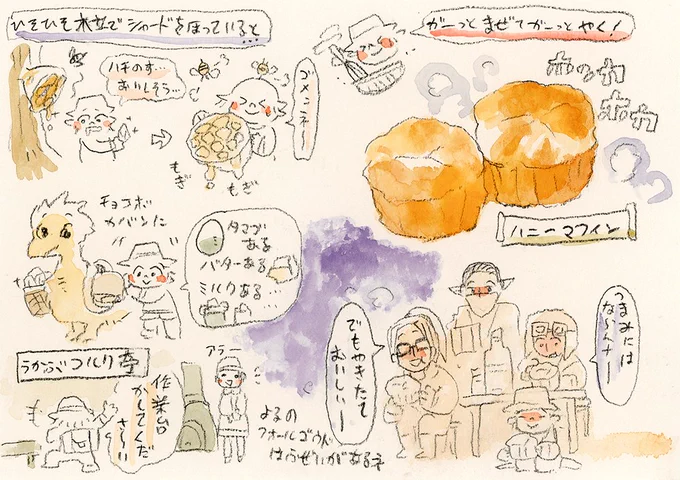 ひそひそ水立でシャードをほっていると
ハチのす…
おいしそう…
ゴメンネー
つくつく
もぎ
もぎ
がーっとまぜてがーっとやく!
ホッカ
ホカ
ハニーマフィン
チョコボ
カバンに
タマゴ
ある
バターある
ミルクある…
うかぶコルク亭
作業台
かしてくだ
さーい
アラー
よるの
フォールゴウド
はふぜいがあるネ
でもやきたて
おいしいー
つまみには
ないんナー